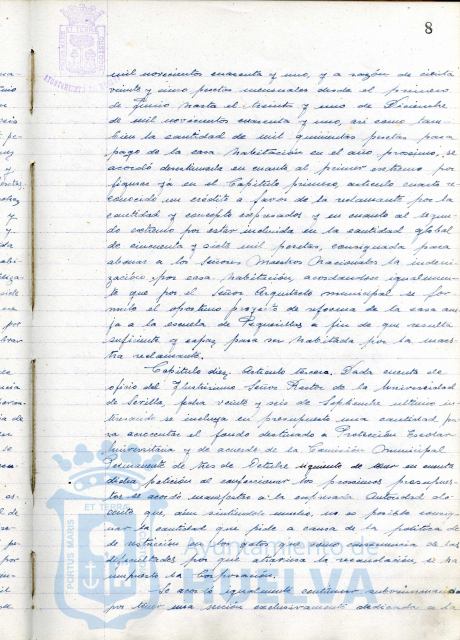 8
mil novecientos cuarenta y uno, y a razón de ciento
veinte y cinco pesetas mensuales desde el primero
de Junio hasta el treinta y uno de Diciembre
de mil novecientos cuarenta y uno, así como tam-
bien la cantidad de mil quinientas pesetas para
pago de la casa habitación en el año proximo, se
acordó desestimarla en cuanto al primer extremo por
figurar ya en el Capitulo primero, articulo cuarto re-
conocido un crédito a favor de la reclamante por la
cantidad y concepto expresados y en cuanto al segun-
do extremo por estar incluida en la cantidad global
de cincuenta y siete mil pesetas, consignada para
abonar a los Señores Maestros Nacionales la indemni-
zación por casa habitación, acordandose igualmen-
te que por el Señor Arquitecto municipal se for-
mule el oportuno proyecto de reforma de la casa ane-
ja a la escuela de a fin de que resulte
suficiente y capaz para ser habitada por la maes-
tra reclamante.
Capitulo diez. Articulo tercero. Dada cuenta de
oficio del Ilustrisimo Señor Rector de la Universidad
de Sevilla, fecha veinte y seis de Septiembre ultimo in-
teresando se incluya en presupuesto una cantidad pa-
ra acrecentar el fondo destinado a Protección Escolar
Universitaria y de acuerdo de la Comisión Municipal
Permanente de tres de Octubre siguiente de tener en cuenta
dicha petición al confeccionar los proximos presupues-
tos se acordó manifestar a la expresada Autoridad do-
cente que, aun sintiendolo mucho, no es posible consig-
nar la cantidad que pide a causa de la politica de
restricción en los gastos que como consecuencia de las
dificultades por que atraviesa la recaudación, se ha
impuesto la Corporación.
Se acordó igualmente continuar subvencionando
por tener una sección exclusivamente dedicada a la
Ayuntamiento de
HUELVA
PORTUS MARIS
ET TERRAE